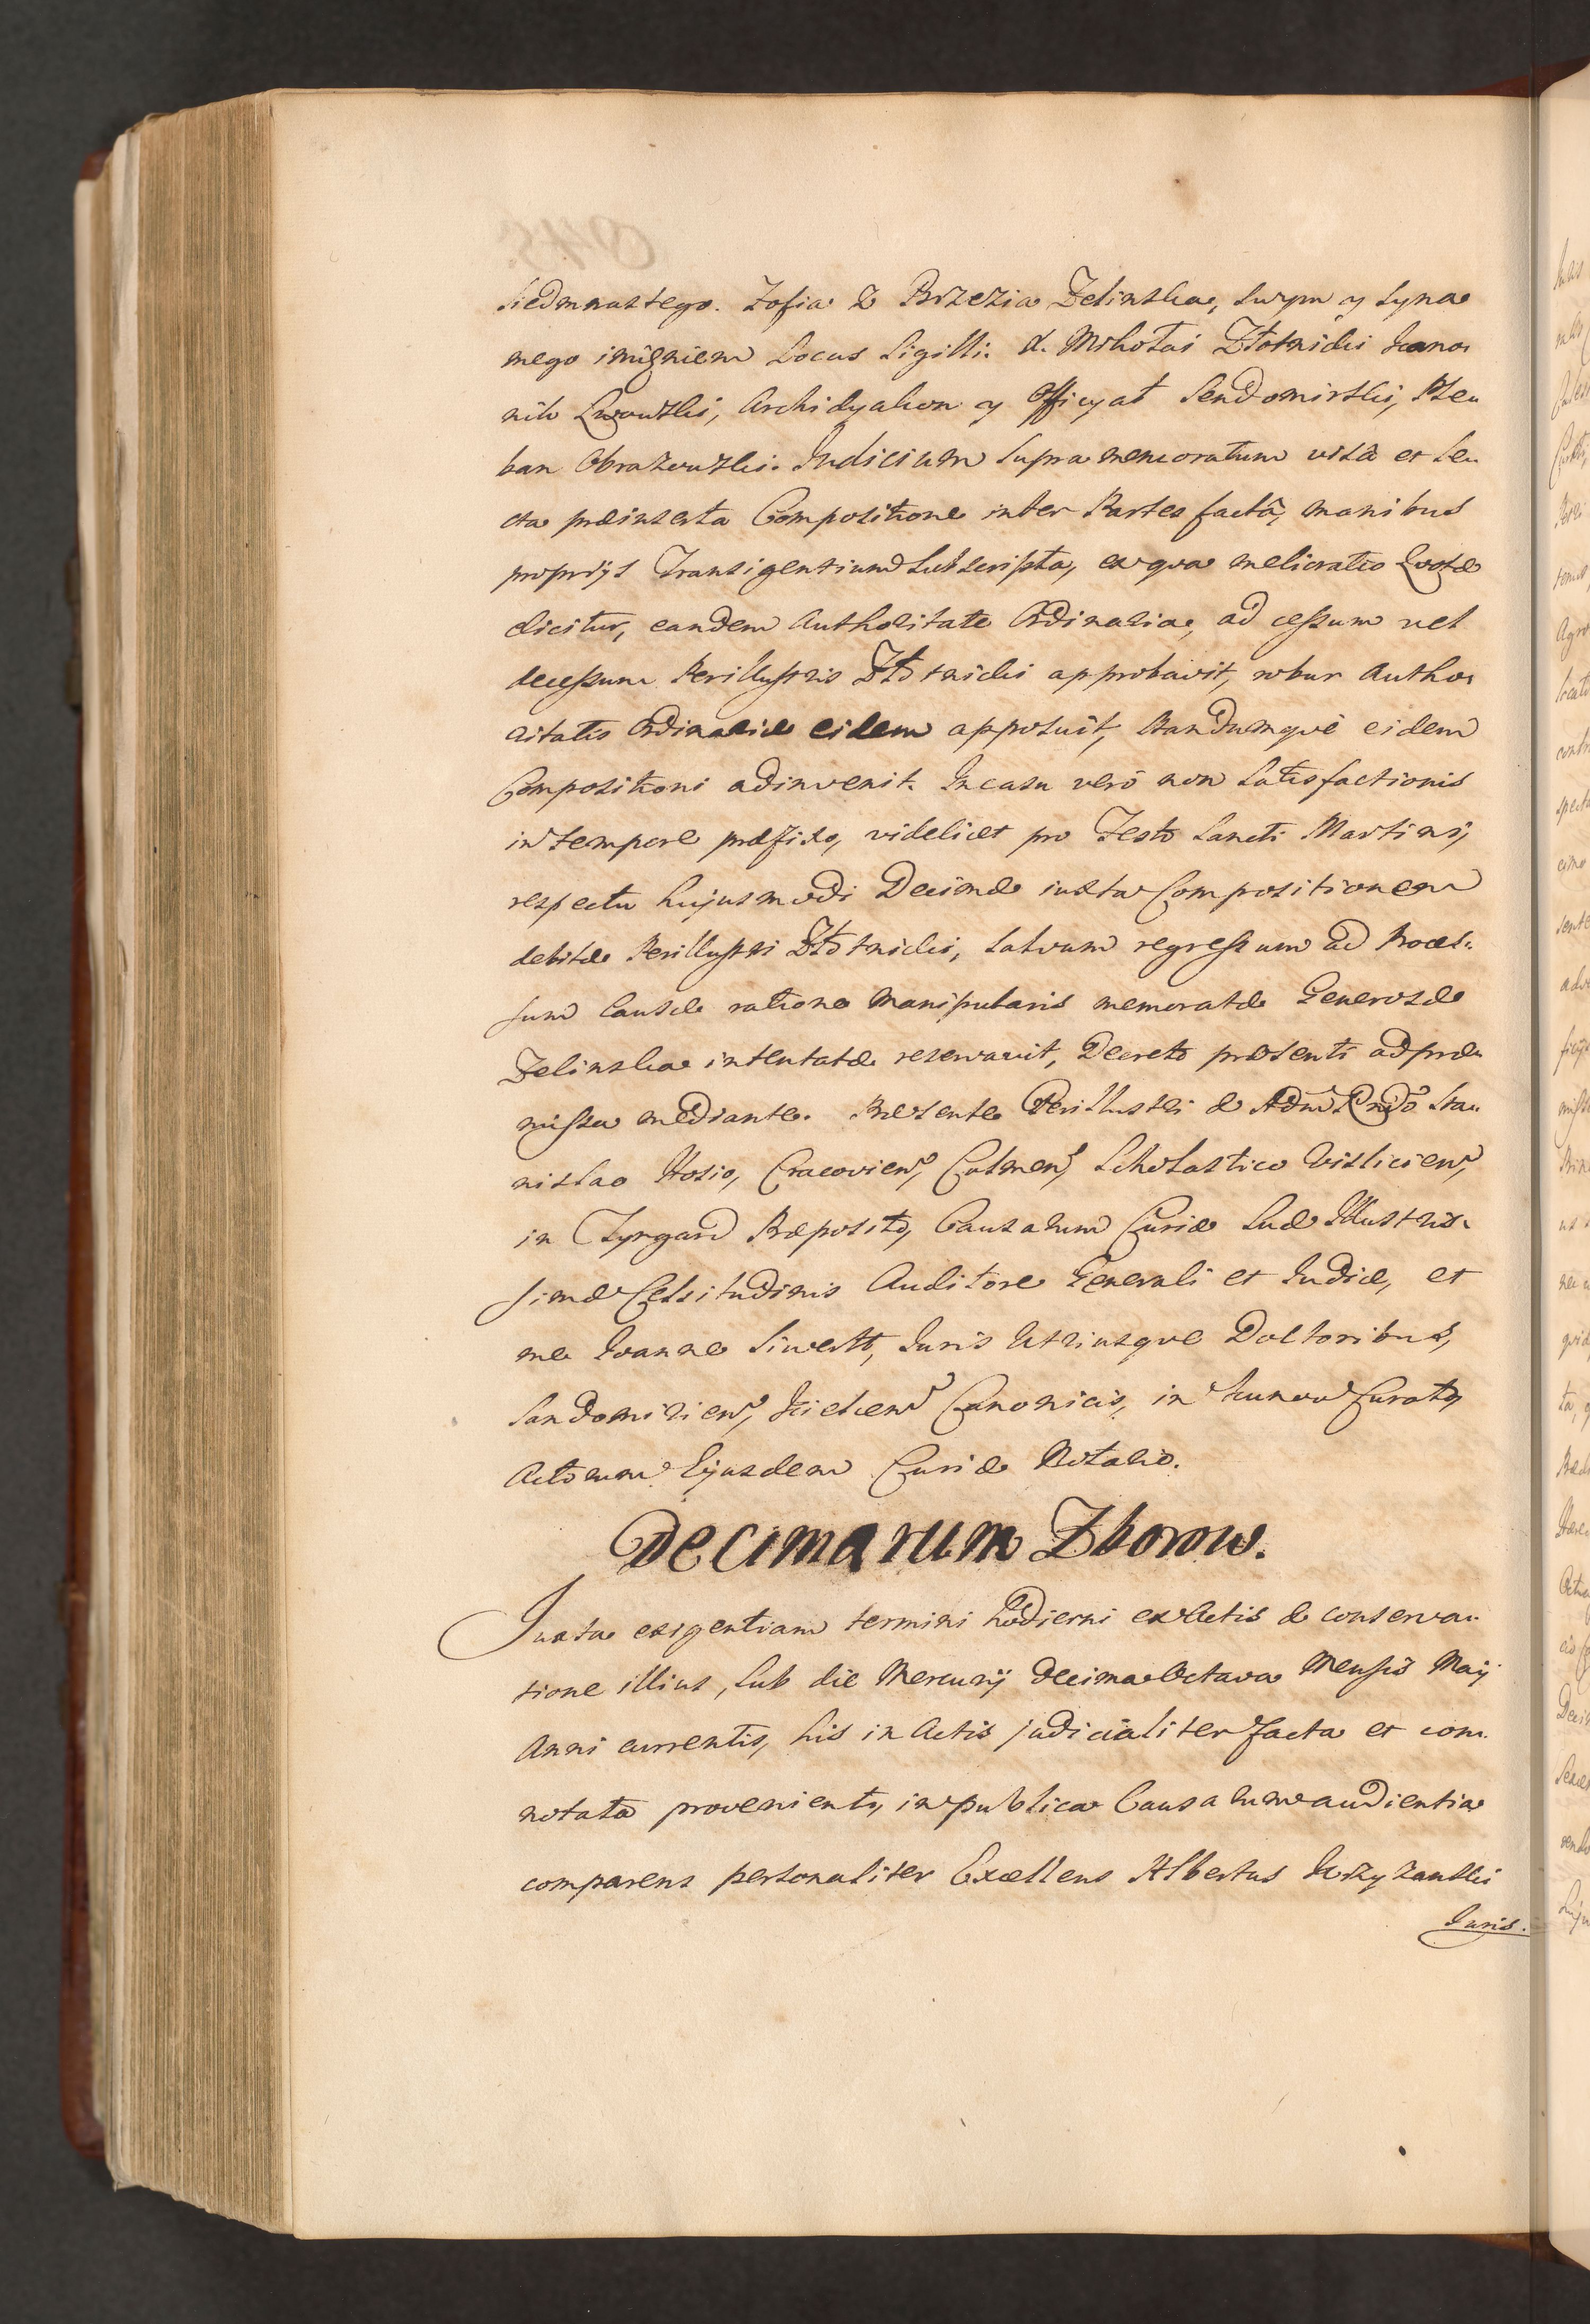 siedmnastego. Zofia z Brzezia Zelinska, swym y syna
mego imieniem Locus Sigilli. X. Mikołai Złotnicki Kano-
nik Lwowski, Archidyakon y Officyał Sendomirski, Ple-
ban Obrazowski. Judicium supra memoratum visa et le-
cta præinserta Compositione inter Partes factâ, manibus
proprijs Transigentium subscripta, ex qva melioratio Qvotæ
elicitur, eandem Authoritate Ordinaria, ad cessum vel
decessum Perillustris Złotnicki approbavit, robur Autho-
ritatis Ordinariæ eidem apposuit, standumqve eidem
Compositioni adinvenit. In casu verò non satisfactionis
in tempore præfixo, videlicet pro Festo Sancti Martini,
respectu hujusmodi Decimæ iuxta Compositionem
debitæ Perillustri Złotnicki, salvum regressum ad Proces-
sum Causæ ratione manipularis memoratæ Generosæ
Zelinska intentatæ reservavit, Decreto præsenti ad præ-
missa mediante. Præsente Perillustri & Adm Rndo Sta-
nislao Hosio, Cracovien, Culmen, Scholastico Vislicien,
in Præposito, Causarum Curiæ Suæ Illustris-
simæ Celsitudinis Auditore Generali et Judice, et
me Joanne Siwert, Juris Utriusqve Doctoribus,
Sandomirien, Kielcen Canonicis, in Curato,
Actorum Ejusdem Curiæ Notario.
Decimarum Zborow.
Juxta exigentiam termini hodierni ex Actis & conserva-
tione illius, sub die Mercurij decima Octava Mensis Maij
Anni currentis, his in Actis judicialiter facta et con-
notata provenientis, in publica Causarum audientia
comparens personaliter Excellens Albertus Krzyzanski
Juris.